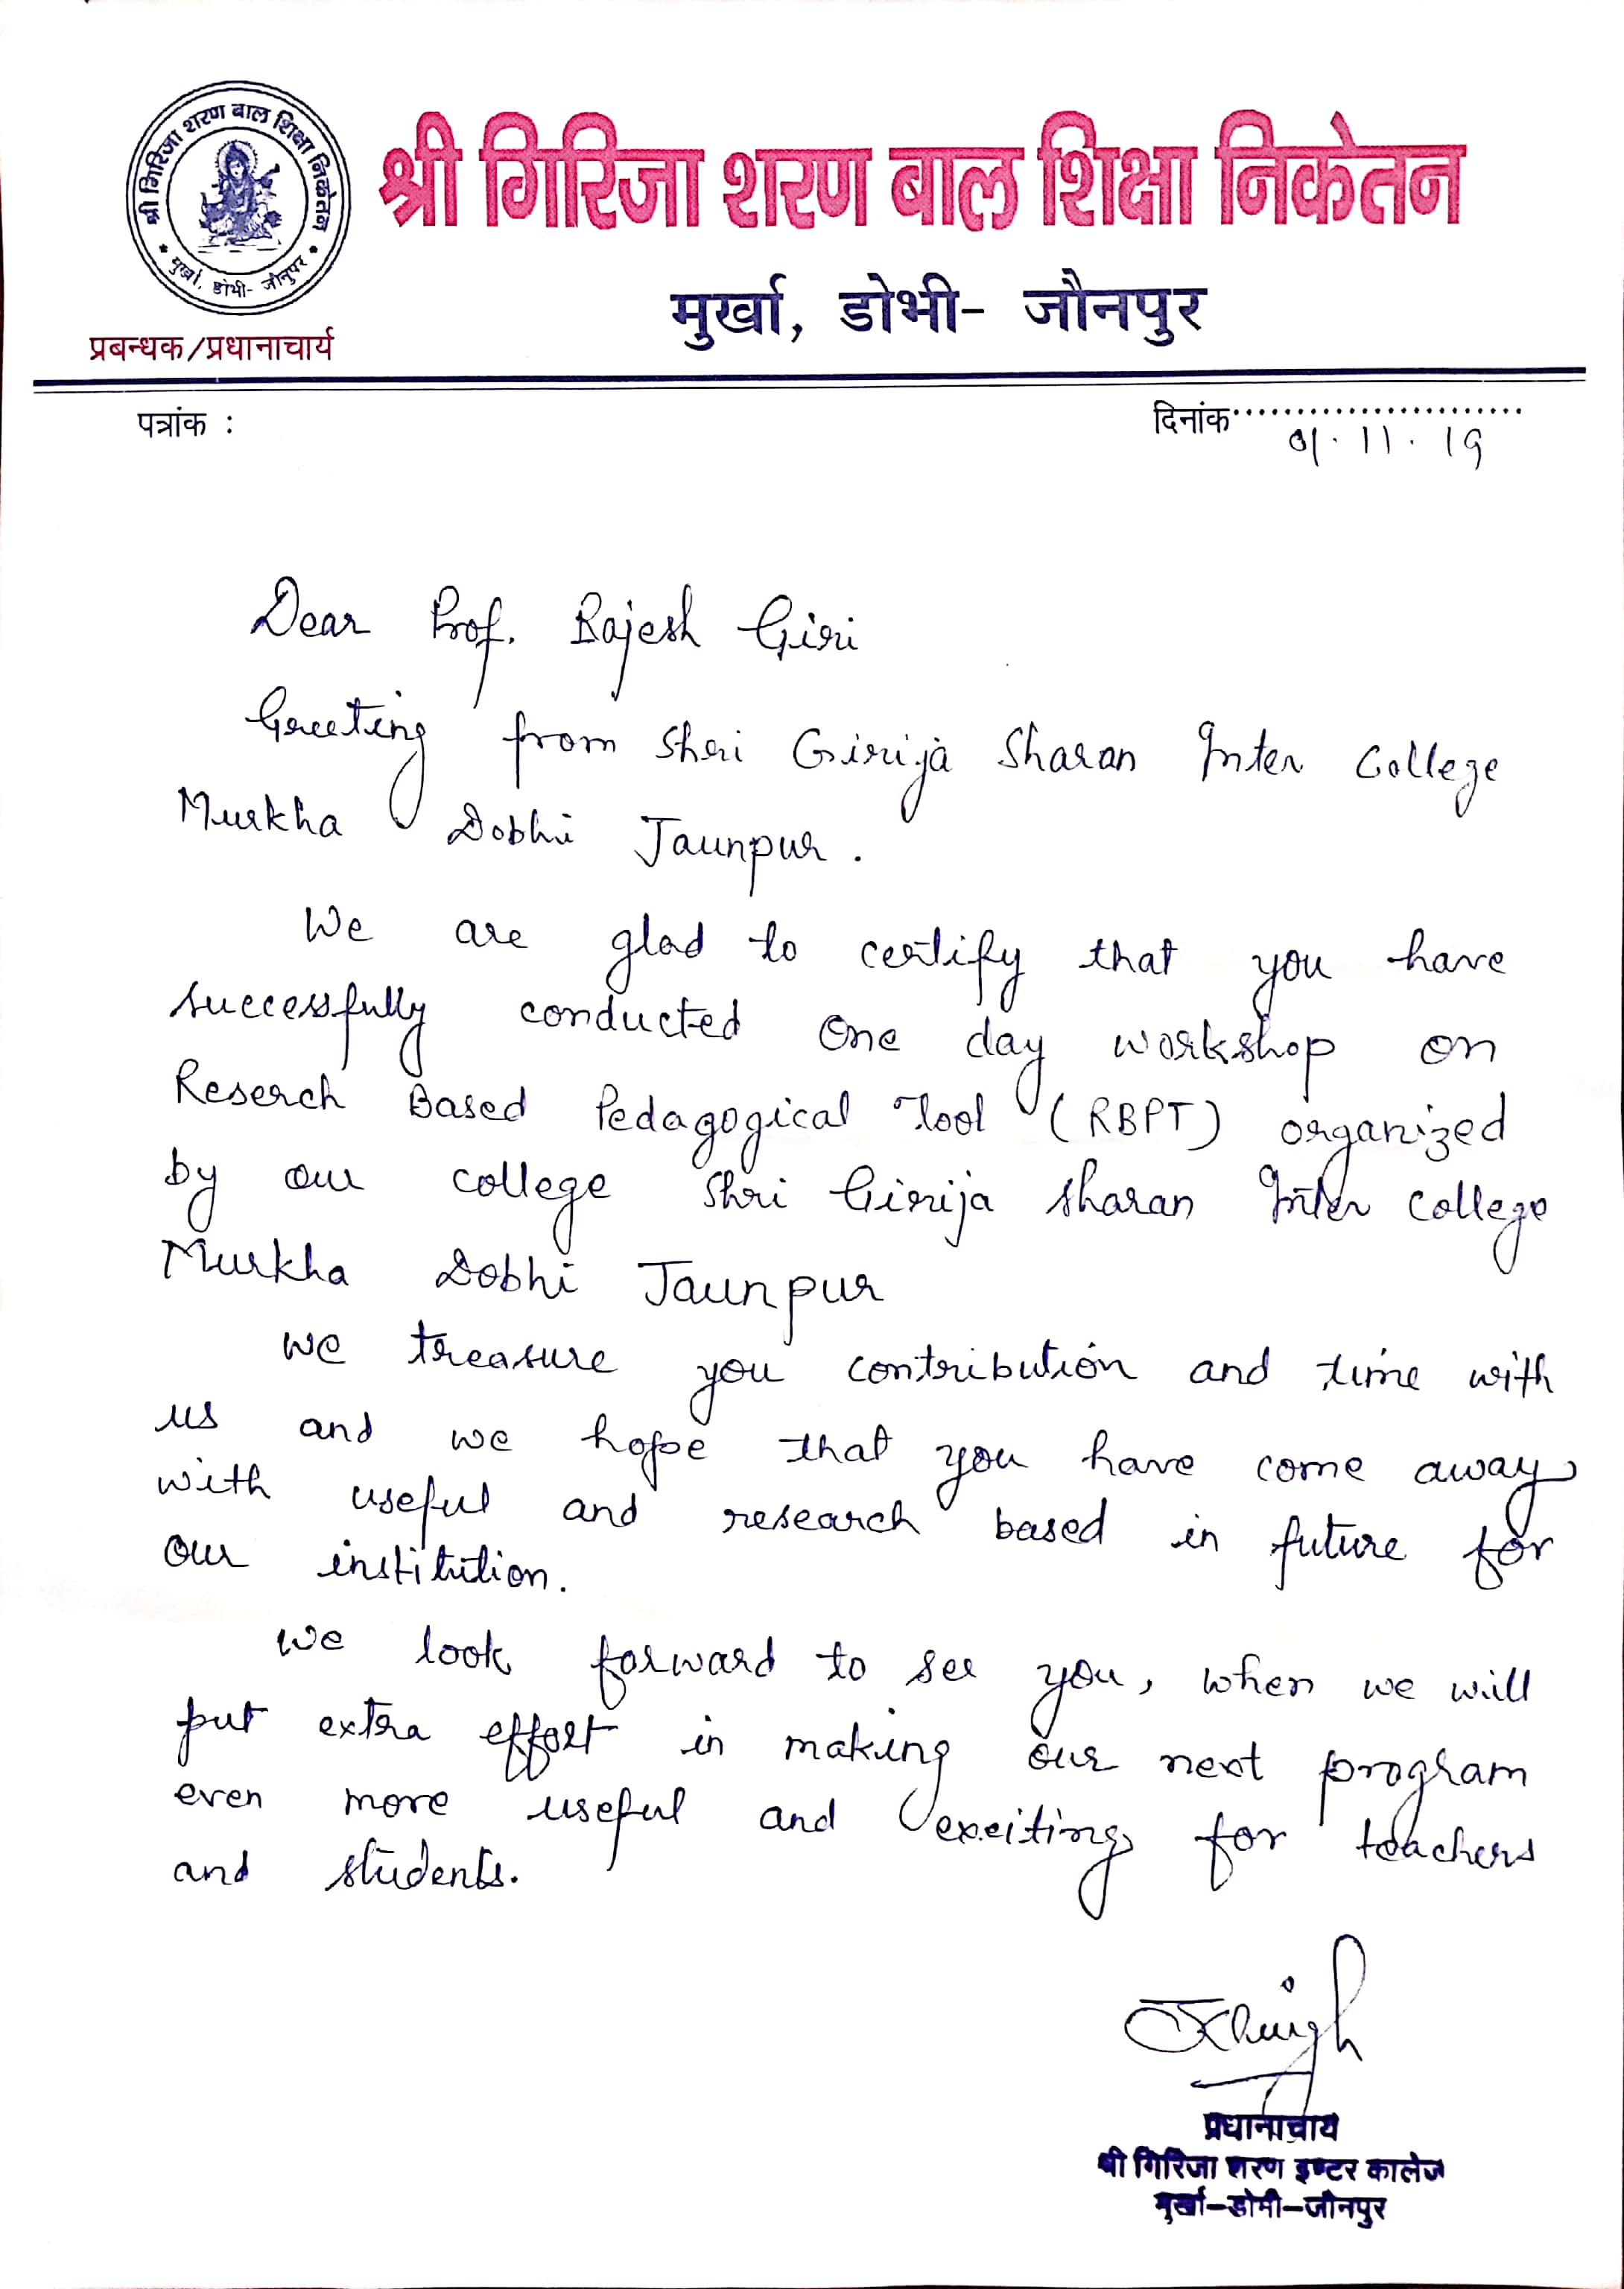 श्री गिरिजा शरण बाल शिक्षा निकेतन
मुर्खा, डोभी- जौनपुर
श्री गिरिजा शरण बाल शिक्षा निकेतन
मुर्खा, डोभी- जौनपुर
प्रबन्धक/प्रधानाचार्य
पत्रांक :
दिनांक........................
01.11.19
Dear Prof. Rajesh Giri
Greeting from Shri Girija Sharan Inter College
Murkha Dobhi Jaunpur.
We are glad to certify that you have
successfully conducted One day workshop on
Reserch Based Pedagogical Tool (RBPT) organized
by our college Shri Girija Sharan Inter College
Murkha Dobhi Jaunpur
We treasure you contribution and time with
us and we hope that you have come away
with useful and research based in future for
our institution.
We look forward to see you, when we will
put extra effort in making our next program
even more useful and exciting for teachers
and students.
प्रधानाचार्य
श्री गिरिजा शरण इण्टर कालेज
मुर्खा-डोभी-जौनपुर